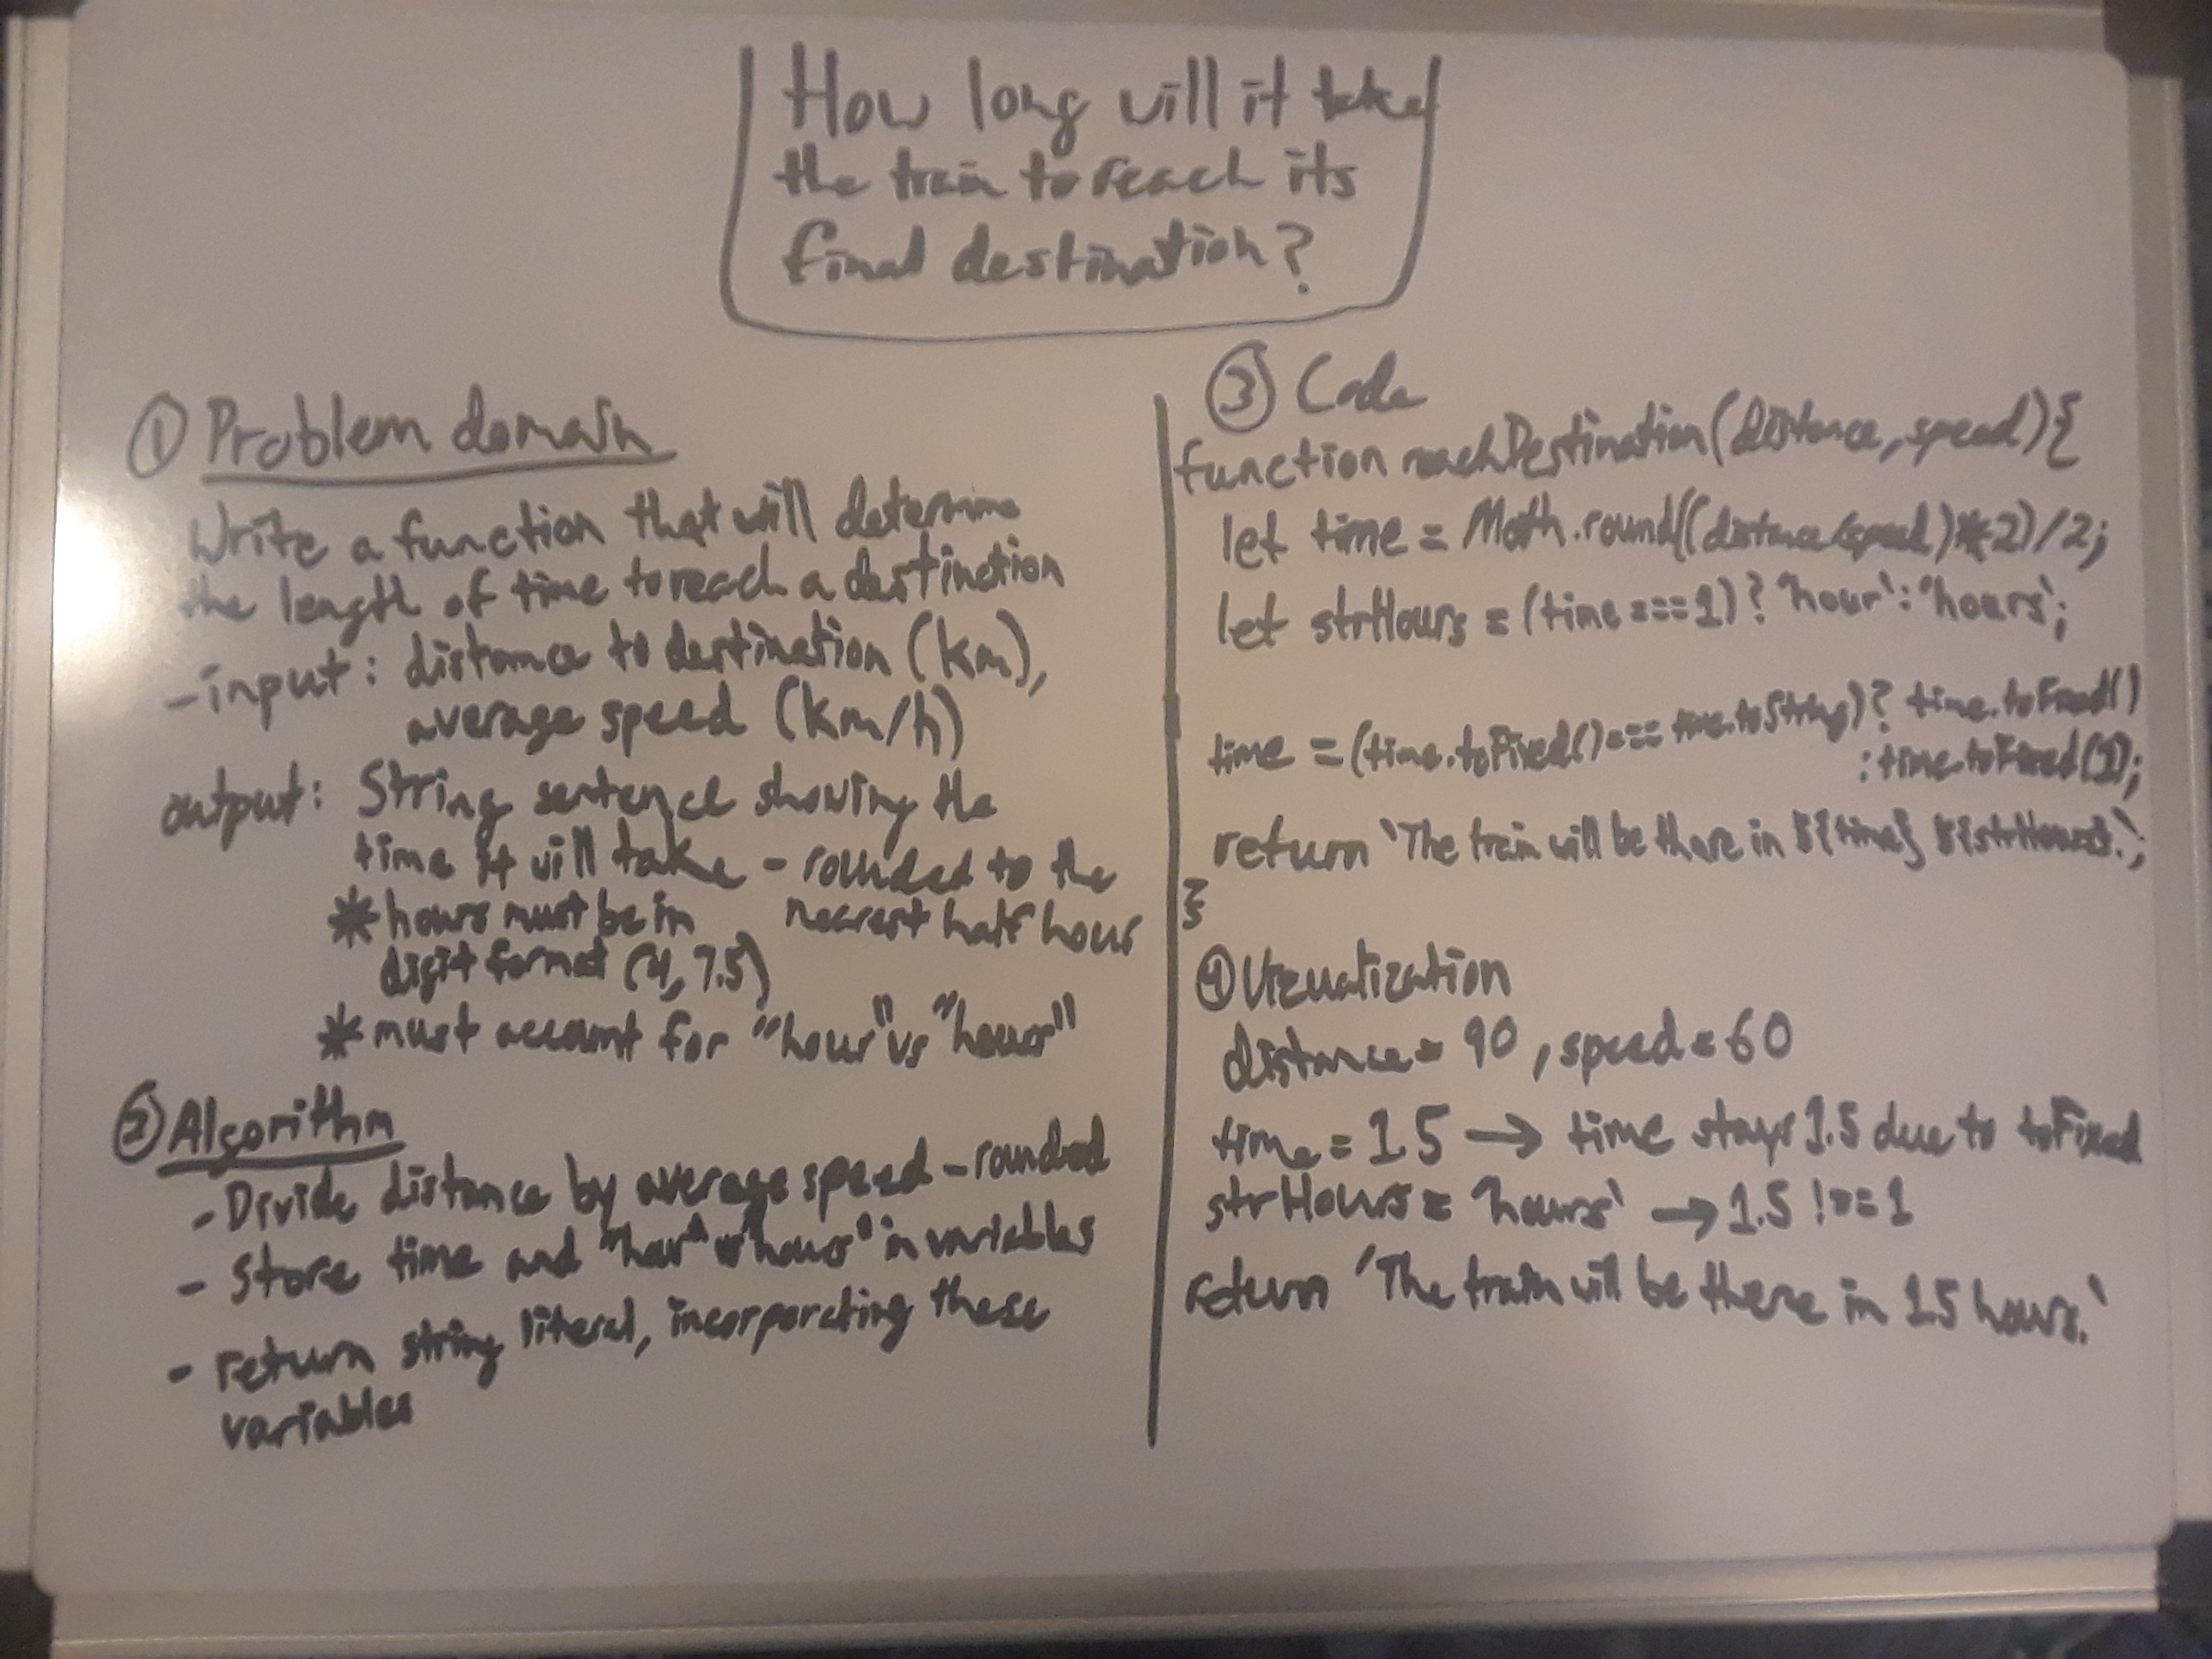 How long will it take
the train to reach its
final destination?
① Problem domain
Write a function that will determine
the length of time to reach a destination
- input: distance to destination (km),
average speed (km/h)
output: String sentence showing the
time it will take - rounded to the
nearest half hour
* hours must be in
digit format (4, 7.5)
* must account for "hour" vs "hours"
② Algorithm
- Divide distance by average speed - rounded
- Store time and "hour" or "hours" in variables
- return string literal, incorporating these
variables
③ Code
function reachDestination(distance, speed){
let time = Math.round((distance/speed)*2)/2;
let strHours = (time === 1) ? `hour` : `hours`;
time = (time.toFixed() === time.toString) ? time.toFixed()
: time.toFixed(1);
return `The train will be there in ${time} ${strHours}.`;
}
④ Vizualization
distance = 90, speed = 60
time = 1.5 → time stays 1.5 due to toFixed
strHours = `hours` → 1.5 !== 1
return `The train will be there in 1.5 hours.`